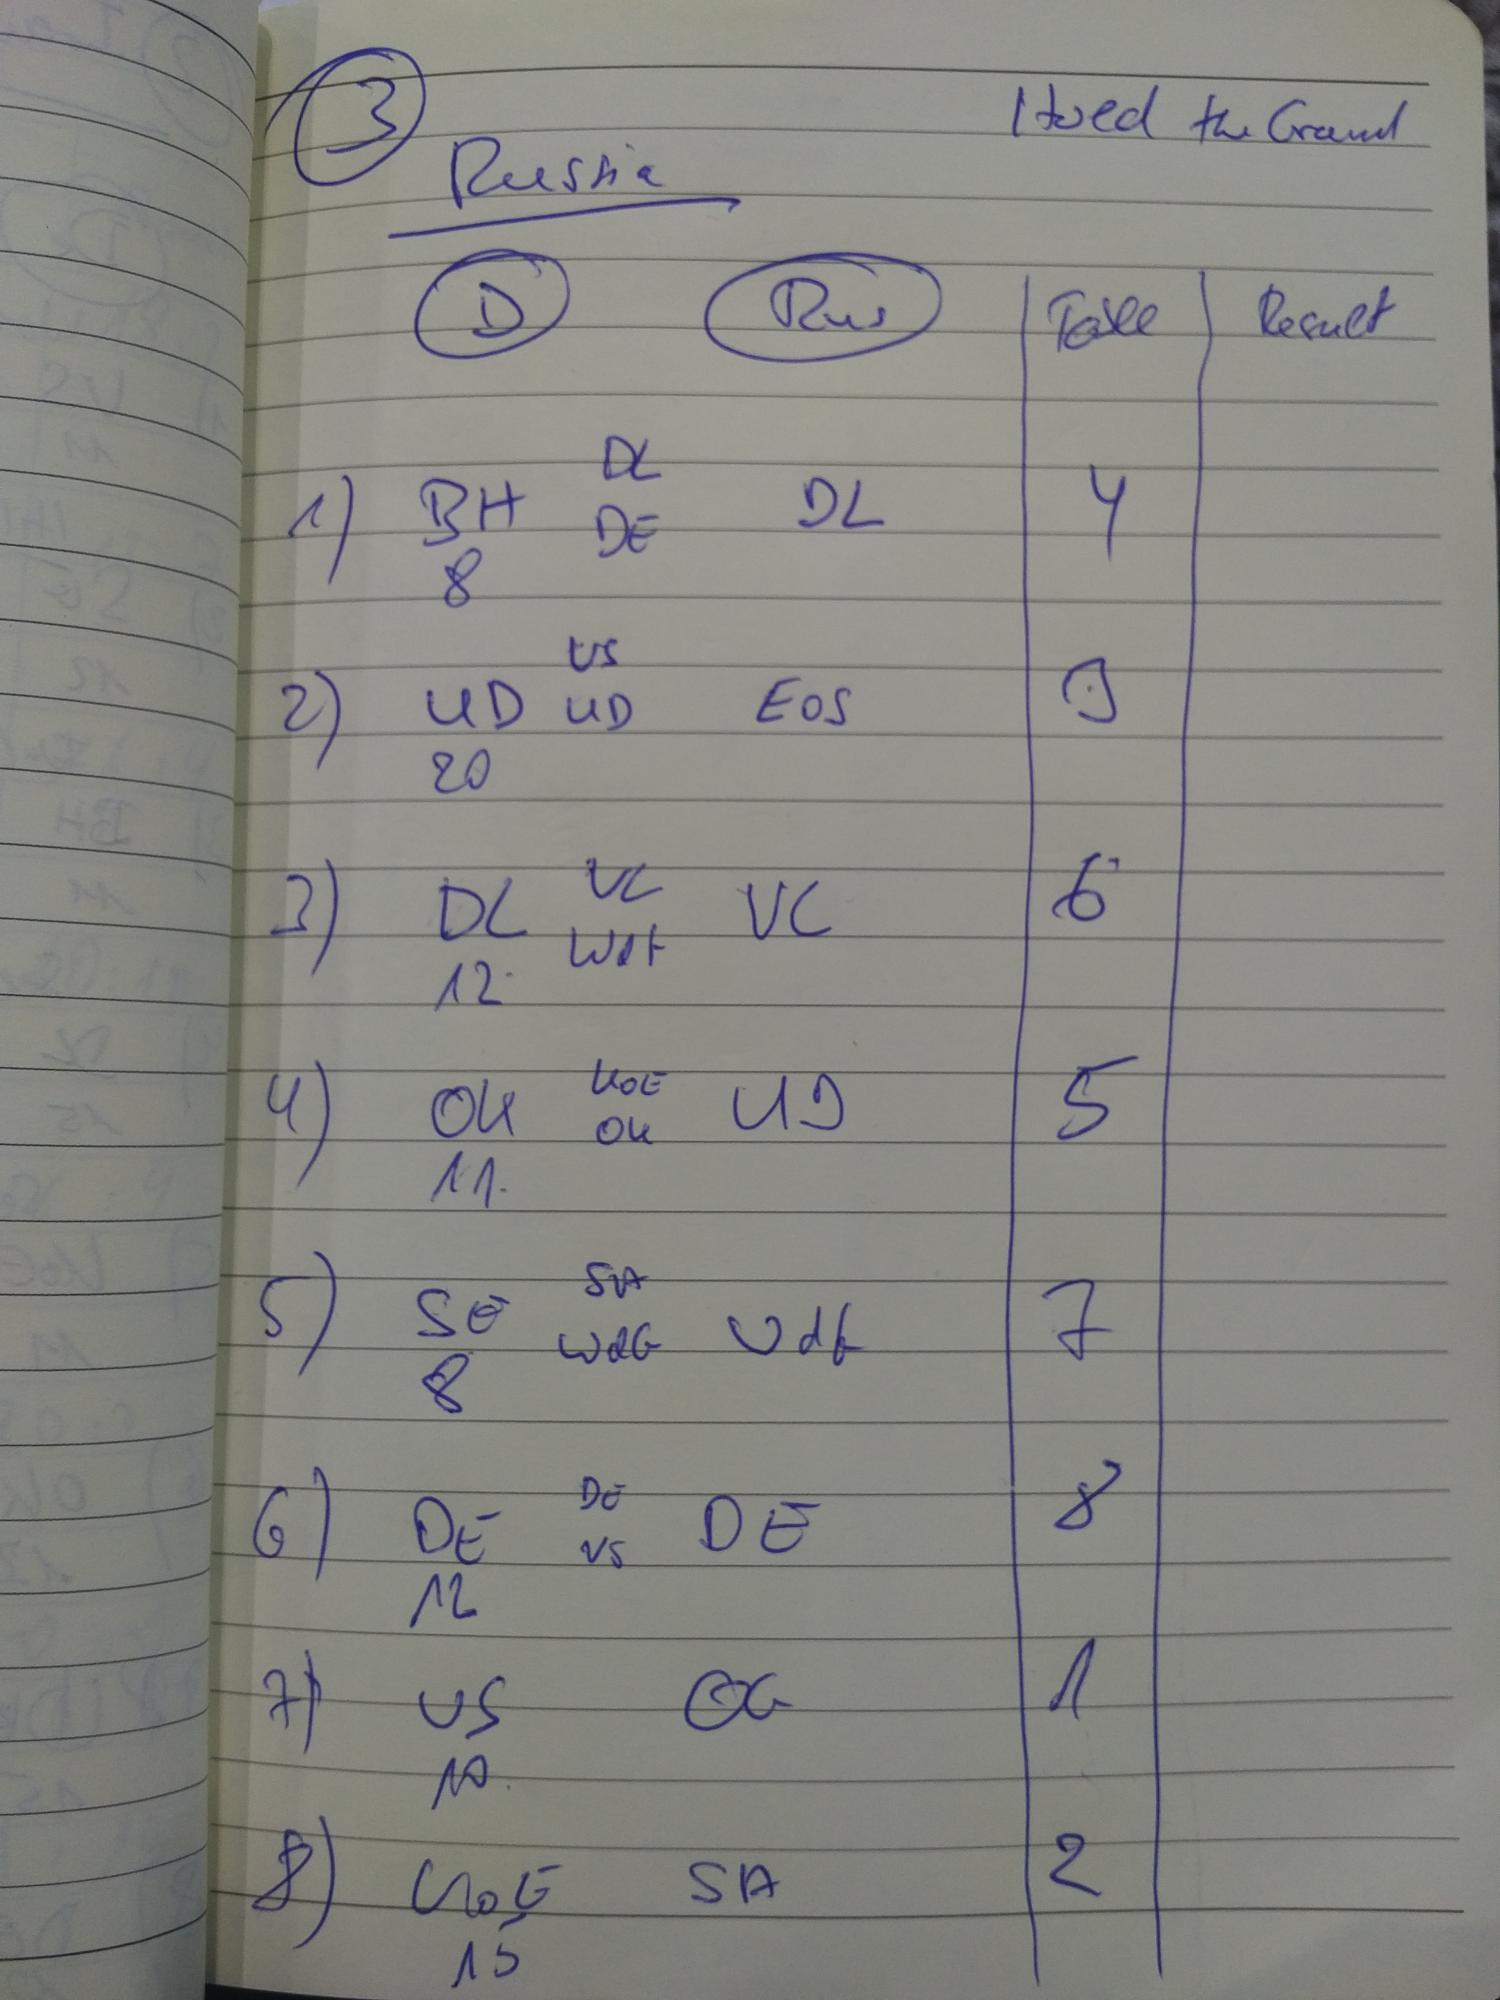 3
Hold the Ground
Russia
D Rus Table Result
DL
1) BH DE DL 4
8
VS
2) UD UD EOS 9
20
VC
3) DL WdF VC 6
12.
KoE
4) OK OK UD 5
11.
SA
5) SE WdG VdF 7
8
DE
6) DE VS DE 8
12
7) VS OG 1
10.
8) KoE SA 2
15